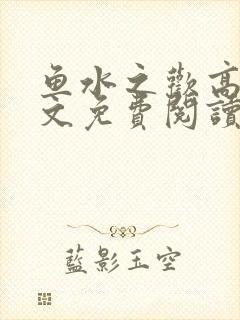 鱼水之歡高
文免費閱讀
藍影玉空